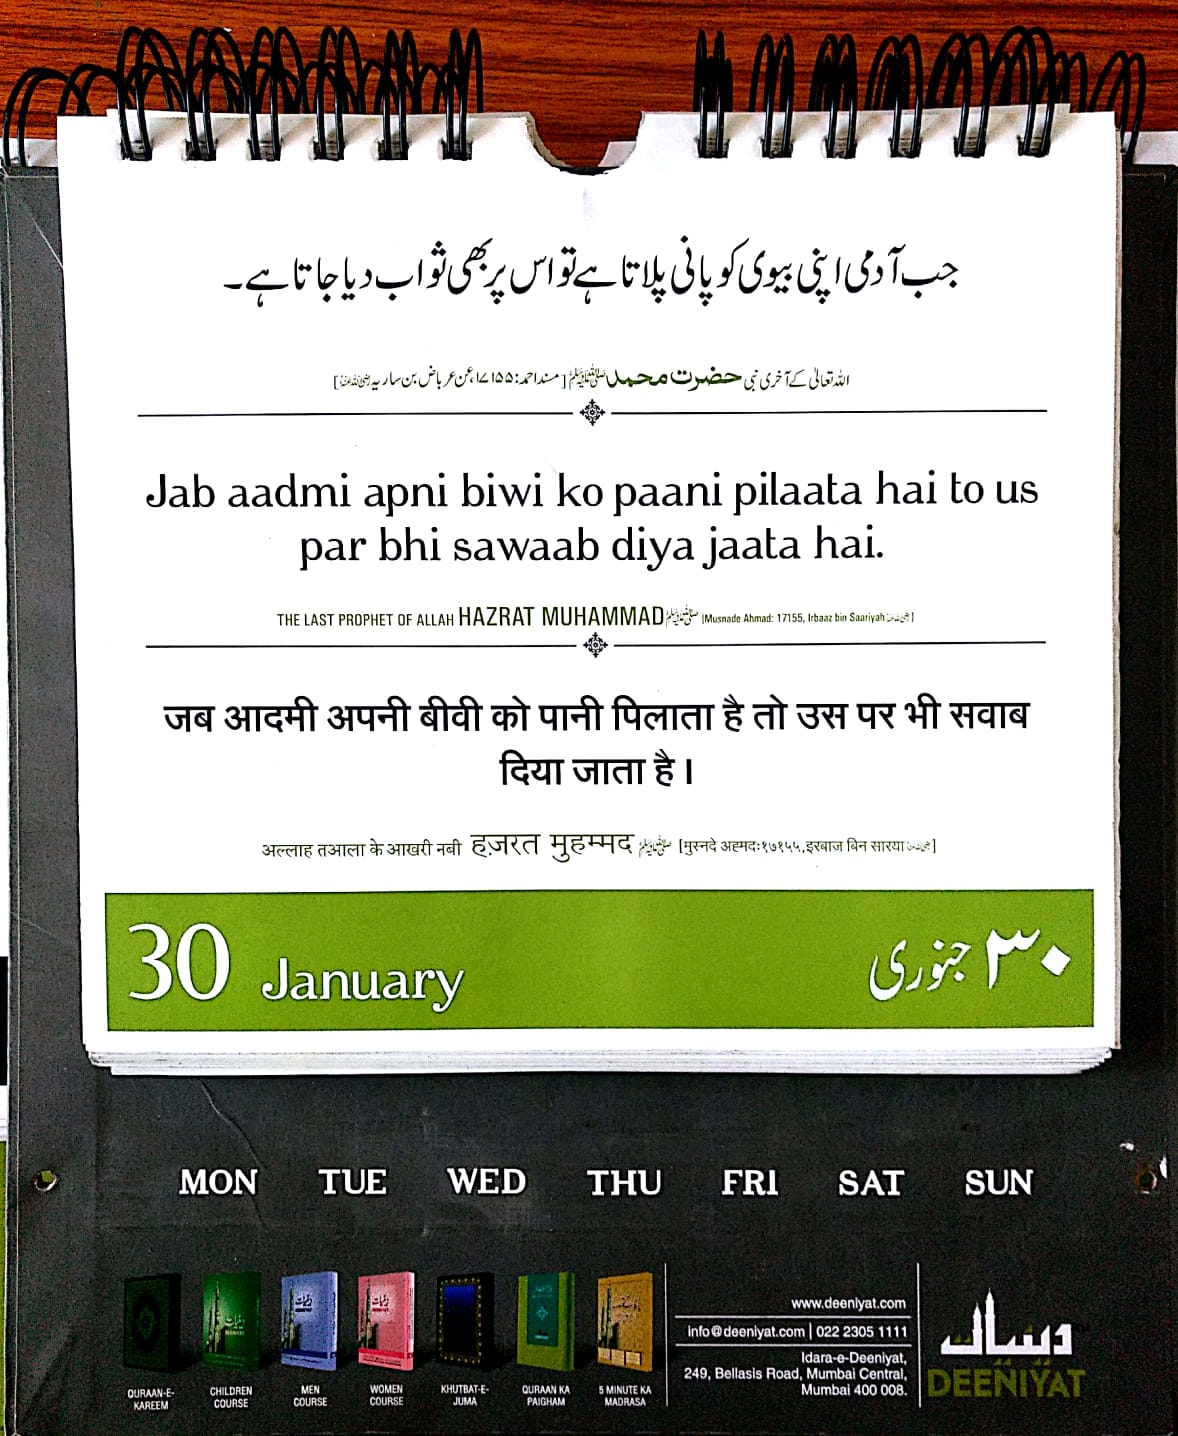 جب آدمی اپنی بیوی کو پانی پلاتا ہے تو اس پر بھی ثواب دیا جاتا ہے۔
اللہ تعالیٰ کے آخری نبی حضرت محمد ﷺ [مسند احمد: ۱۷۱۵۵، عن عرباض بن ساریہ رضی اللہ عنہ]
Jab aadmi apni biwi ko paani pilaata hai to us
par bhi sawaab diya jaata hai.
THE LAST PROPHET OF ALLAH HAZRAT MUHAMMAD ﷺ [Musnade Ahmad: 17155, Irbaaz bin Saariyah]
जब आदमी अपनी बीवी को पानी पिलाता है तो उस पर भी सवाब
दिया जाता है।
अल्लाह तआला के आखरी नबी हज़रत मुहम्मद ﷺ [मुस्नदे अहमदः१७१५५,इरबाज बिन सारया]
30 January
۳۰ جنوری
MON TUE WED THU FRI SAT SUN
QURAAN-E-
KAREEM
CHILDREN
COURSE
MEN
COURSE
WOMEN
COURSE
KHUTBAT-E-
JUMA
QURAAN KA
PAIGHAM
5 MINUTE KA
MADRASA
www.deeniyat.com
info@deeniyat.com | 022 2305 1111
Idara-e-Deeniyat,
249, Bellasis Road, Mumbai Central,
Mumbai 400 008.
دینیات
DEENIYAT